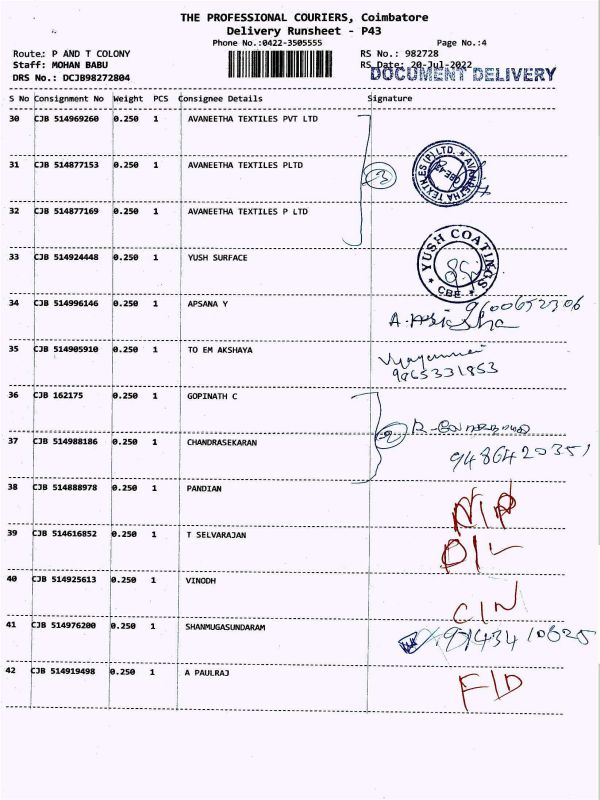 THE PROFESSIONAL COURIERS, Coimbatore
Delivery Runsheet - P43
Phone No.:0422-3505555 Page No.:4
Route: P AND T COLONY RS No.: 982728
Staff: MOHAN BABU RS Date: 20-Jul-2022
DRS No.: DCJB98272804 DOCUMENT DELIVERY
S No Consignment No Weight PCS Consignee Details Signature
30 CJB 514969260 0.250 1 AVANEETHA TEXTILES PVT LTD
31 CJB 514877153 0.250 1 AVANEETHA TEXTILES PLTD
32 CJB 514877169 0.250 1 AVANEETHA TEXTILES P LTD
33 CJB 514924448 0.250 1 YUSH SURFACE
YUSH COATINGS
* CBE *
34 CJB 514996146 0.250 1 APSANA Y
9600652306
35 CJB 514905910 0.250 1 TO EM AKSHAYA
9965331853
36 CJB 162175 0.250 1 GOPINATH C
37 CJB 514988186 0.250 1 CHANDRASEKARAN
9486420351
38 CJB 514888978 0.250 1 PANDIAN
39 CJB 514616852 0.250 1 T SELVARAJAN
D/L
40 CJB 514925613 0.250 1 VINODH
C/N
41 CJB 514976200 0.250 1 SHANMUGASUNDARAM
42 CJB 514919498 0.250 1 A PAULRAJ
F/D